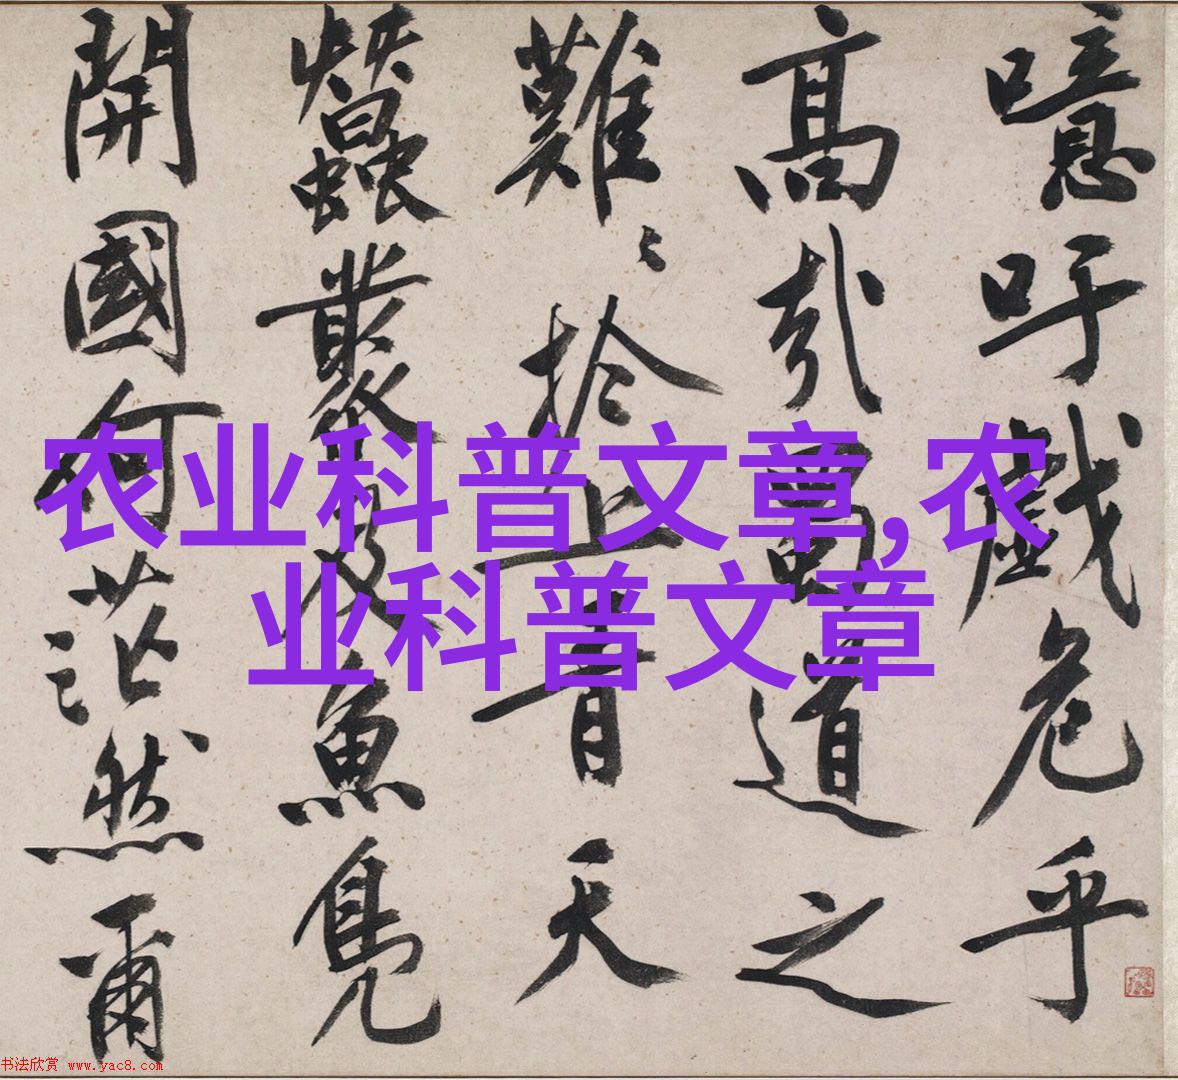 噫吁戲危乎
高哉蜀道之
難〻於上青天
蠶叢及魚鳧
開國何茫然爾
农业科普文章,农
业科普文章
书法欣赏 www.yac8.com